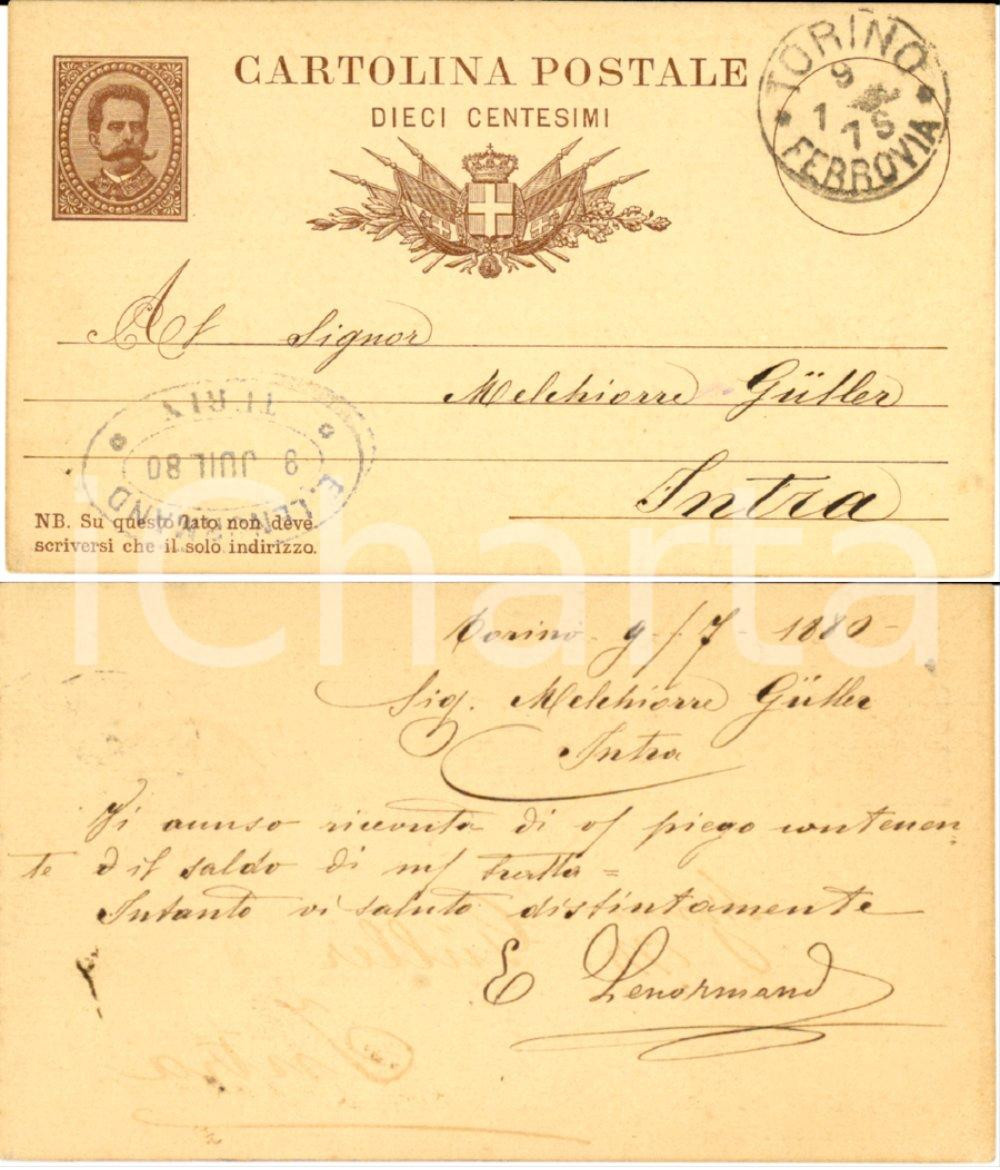 CARTOLINA POSTALE
DIECI CENTESIMI
TORINO
9
1 7 S
FERROVIA
Al Signor
Melchiorre Güller
Intra
E. LENORMAND
9 JUIL 80
TURIN
NB. Su questo lato non deve
scriversi che il solo indirizzo.
iCharta
Torino 9/7 1880
Sig. Melchiorre Güller
Intra
Vi accuso ricevuta di v/ piego contenen
te il saldo di m/ tratta =
Intanto vi saluto distintamente
E Lenormand